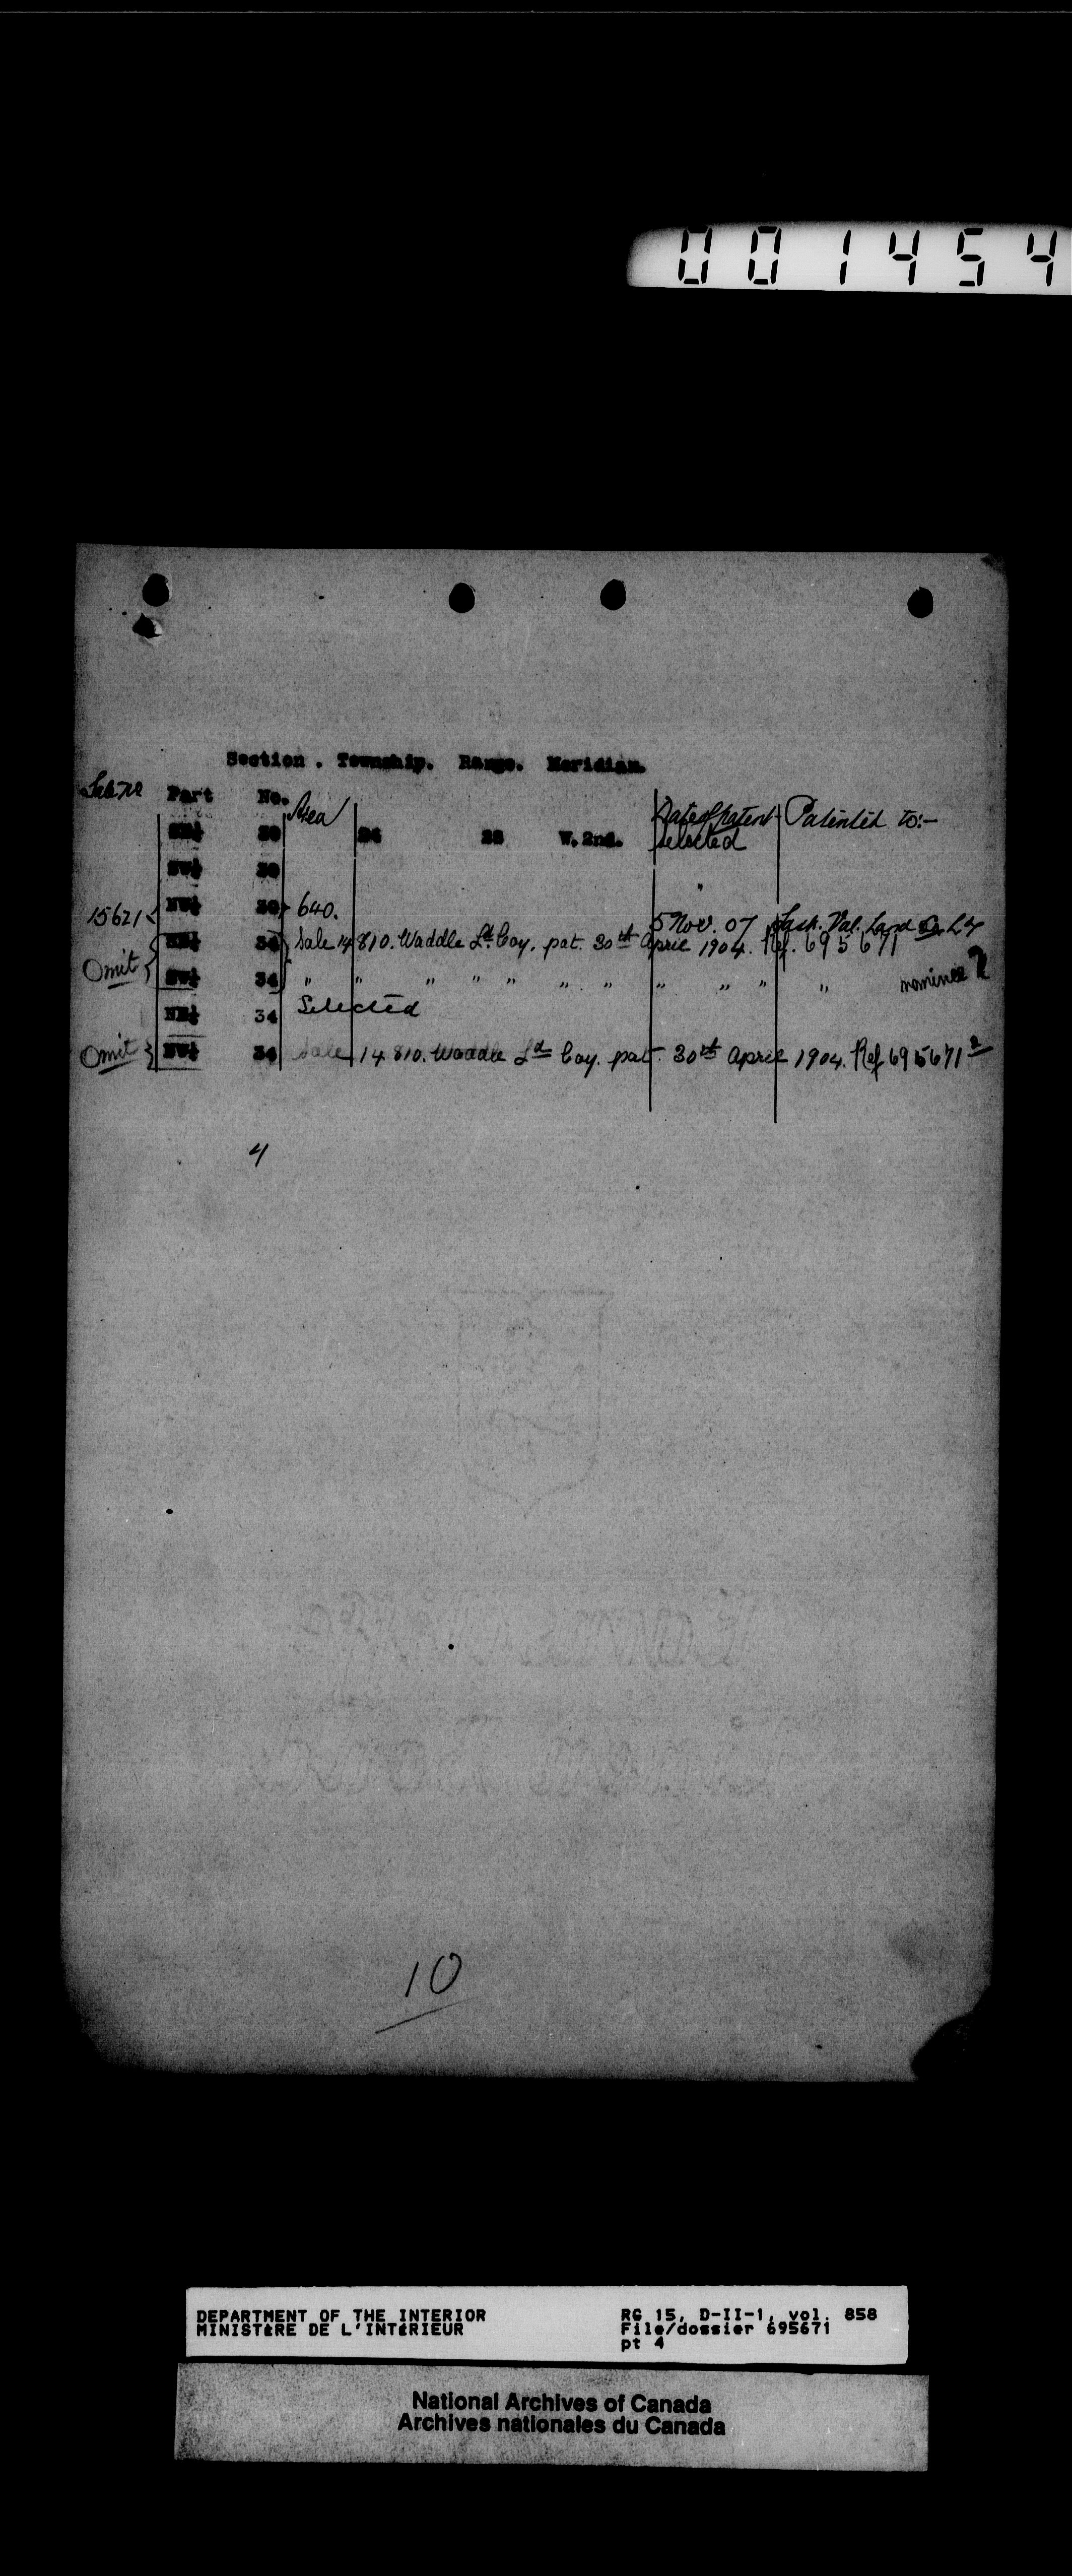 001454
Section. Township. Range. Meridian.
Part No. Area Date of Patent Patented to:-
30 26 W. 2nd. selected
30
15621 30 640. 5 Nov. 07 Sask. Val. Land Co. Ld
34 Sale 14810. Waddle Ld Coy. pat. 30th April 1904. Ref. 695671
Omit 34 " " " " " " " " " " " nominee
34 Selected
Omit 34 Sale 14810. Waddle Ld Coy. pat. 30th April 1904. Ref 695671
4
10
DEPARTMENT OF THE INTERIOR RG 15, D-II-1, vol. 858
MINISTÈRE DE L'INTÉRIEUR File/dossier 695671
pt 4
National Archives of Canada
Archives nationales du Canada